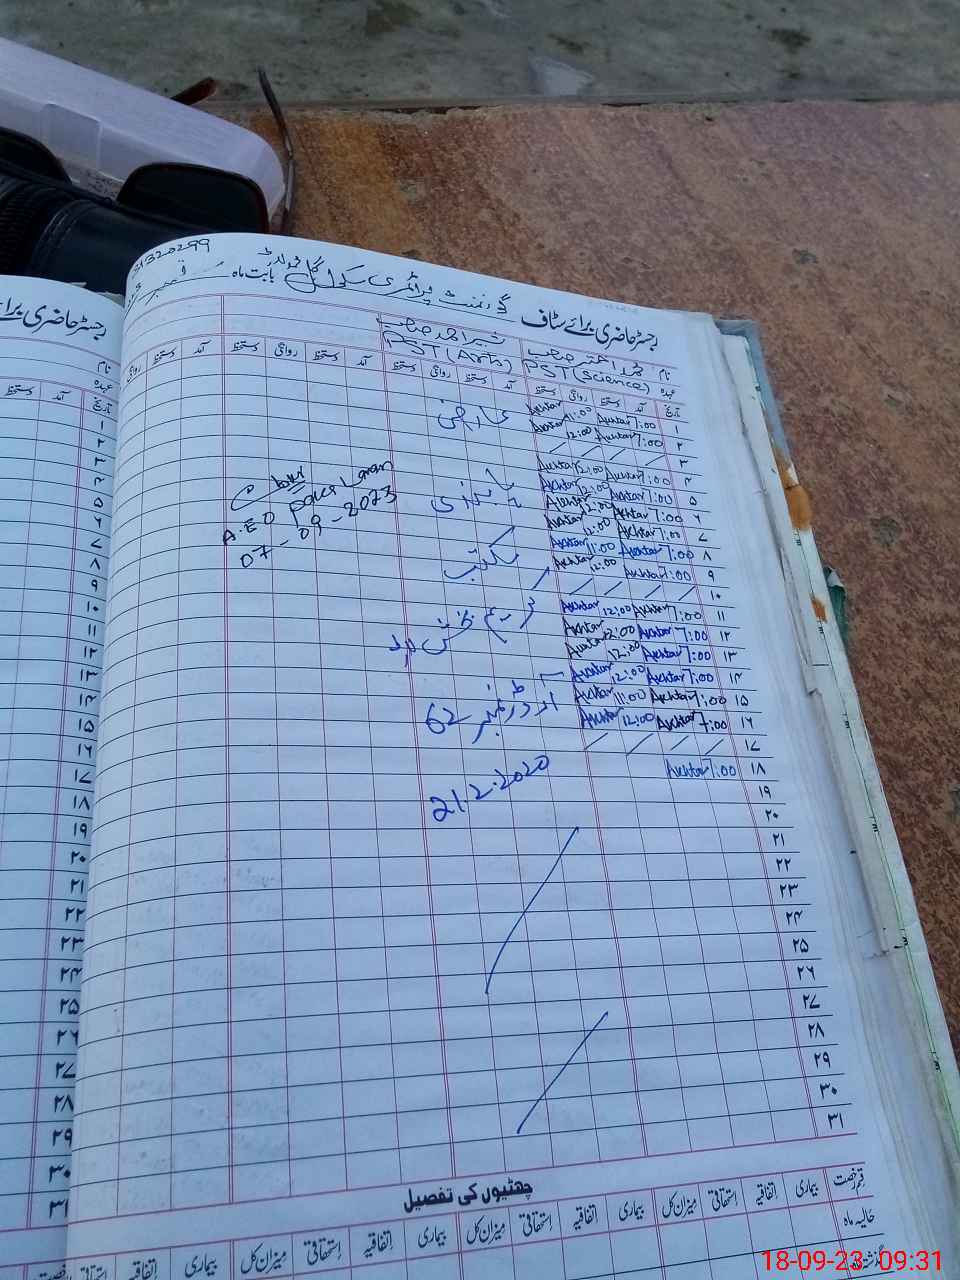 31320299
رجسٹر حاضری برائے سٹاف گورنمنٹ پرائمری سکول گل بابت ماہ ستمبر
نام محمد اختر صاحب شبیر احمد صاحب
عہدہ PST (Science) PST (Arts)
تاریخ آمد دستخط روانگی دستخط آمد دستخط روانگی دستخط آمد دستخط روانگی دستخط آمد دستخط روانگی
۱ 7:00 Akhtar 11:00 Akhtar
۲ 7:00 Akhtar 12:00 Akhtar
۳ / / / /
۴ 7:00 Akhtar 12:00 Akhtar
۵ 7:00 Akhtar 12:00 Akhtar
۶ 7:00 Akhtar 12:00 Akhtar
۷ 7:00 Akhtar 12:00 Akhtar
۸ 7:00 Akhtar 11:00 Akhtar
۹ 7:00 Akhtar 12:00 Akhtar
۱۰ / / / /
۱۱ 7:00 Akhtar 12:00 Akhtar
۱۲ 7:00 Akhtar 12:00 Akhtar
۱۳ 7:00 Akhtar 12:00 Akhtar
۱۴ 7:00 Akhtar 12:00 Akhtar
۱۵ 7:00 Akhtar 11:00 Akhtar
۱۶ 7:00 Akhtar 12:00 Akhtar
۱۷ / / / /
۱۸ 7:00 Akhtar
۱۹
۲۰
۲۱
۲۲
۲۳
۲۴
۲۵
۲۶
۲۷
۲۸
۲۹
۳۰
۳۱
عارضی
مکتب
کریم بخش
آرڈر نمبر 62
21.2.2020
A.E.O
07-09-2023
چھٹیوں کی تفصیل
قسم رخصت بیماری اتفاقیہ استحقاقی میزان کل بیماری اتفاقیہ استحقاقی میزان کل بیماری اتفاقیہ استحقاقی میزان کل بیماری اتفاقیہ استحقاقی
حالیہ ماہ
رجسٹر حاضری برائے
نام
عہدہ
تاریخ آمد دستخط
۱
۲
۳
۴
۵
۶
۷
۸
۹
۱۰
۱۱
۱۲
۱۳
۱۴
۱۵
۱۶
۱۷
۱۸
۱۹
۲۰
۲۱
۲۲
۲۳
۲۴
۲۵
۲۶
۲۷
۲۸
۲۹
۳۰
۳۱
18-09-23 09:31